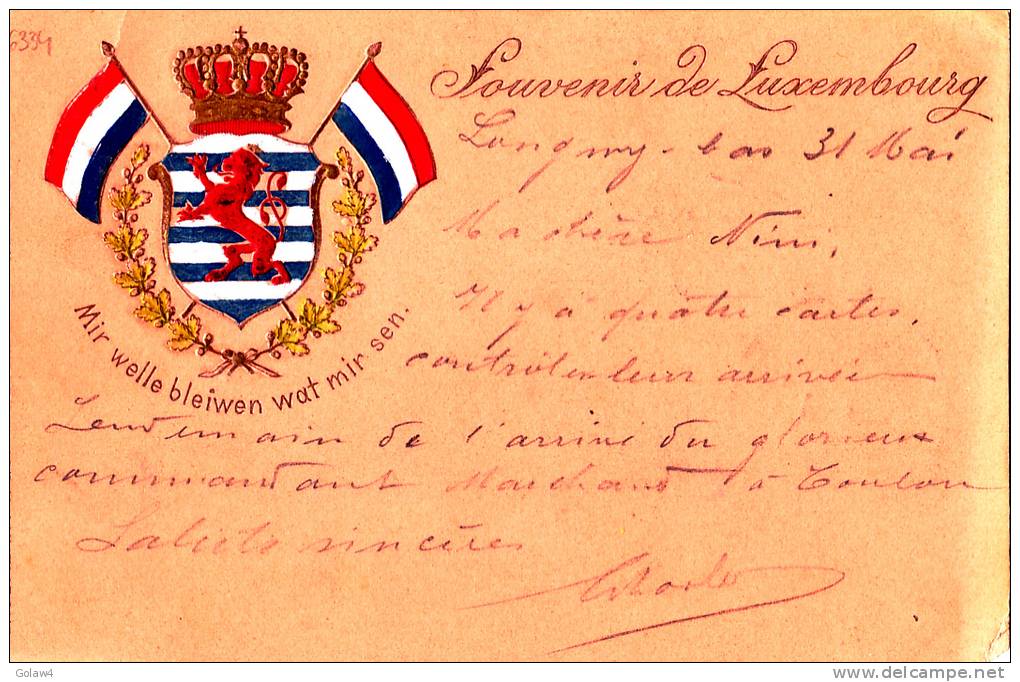 6334
Souvenir de Luxembourg
Longwy - bas 31 Mai
Ma chère Nini,
Il y a quatre cartes,
contrôlez leur arrivée
Mir welle bleiwen wat mir sen.
Lendemain de l'arrivé du glorieux
commandant Marchand à Toulon
Saluts sincères
Charles
Golaw4
www.delcampe.net